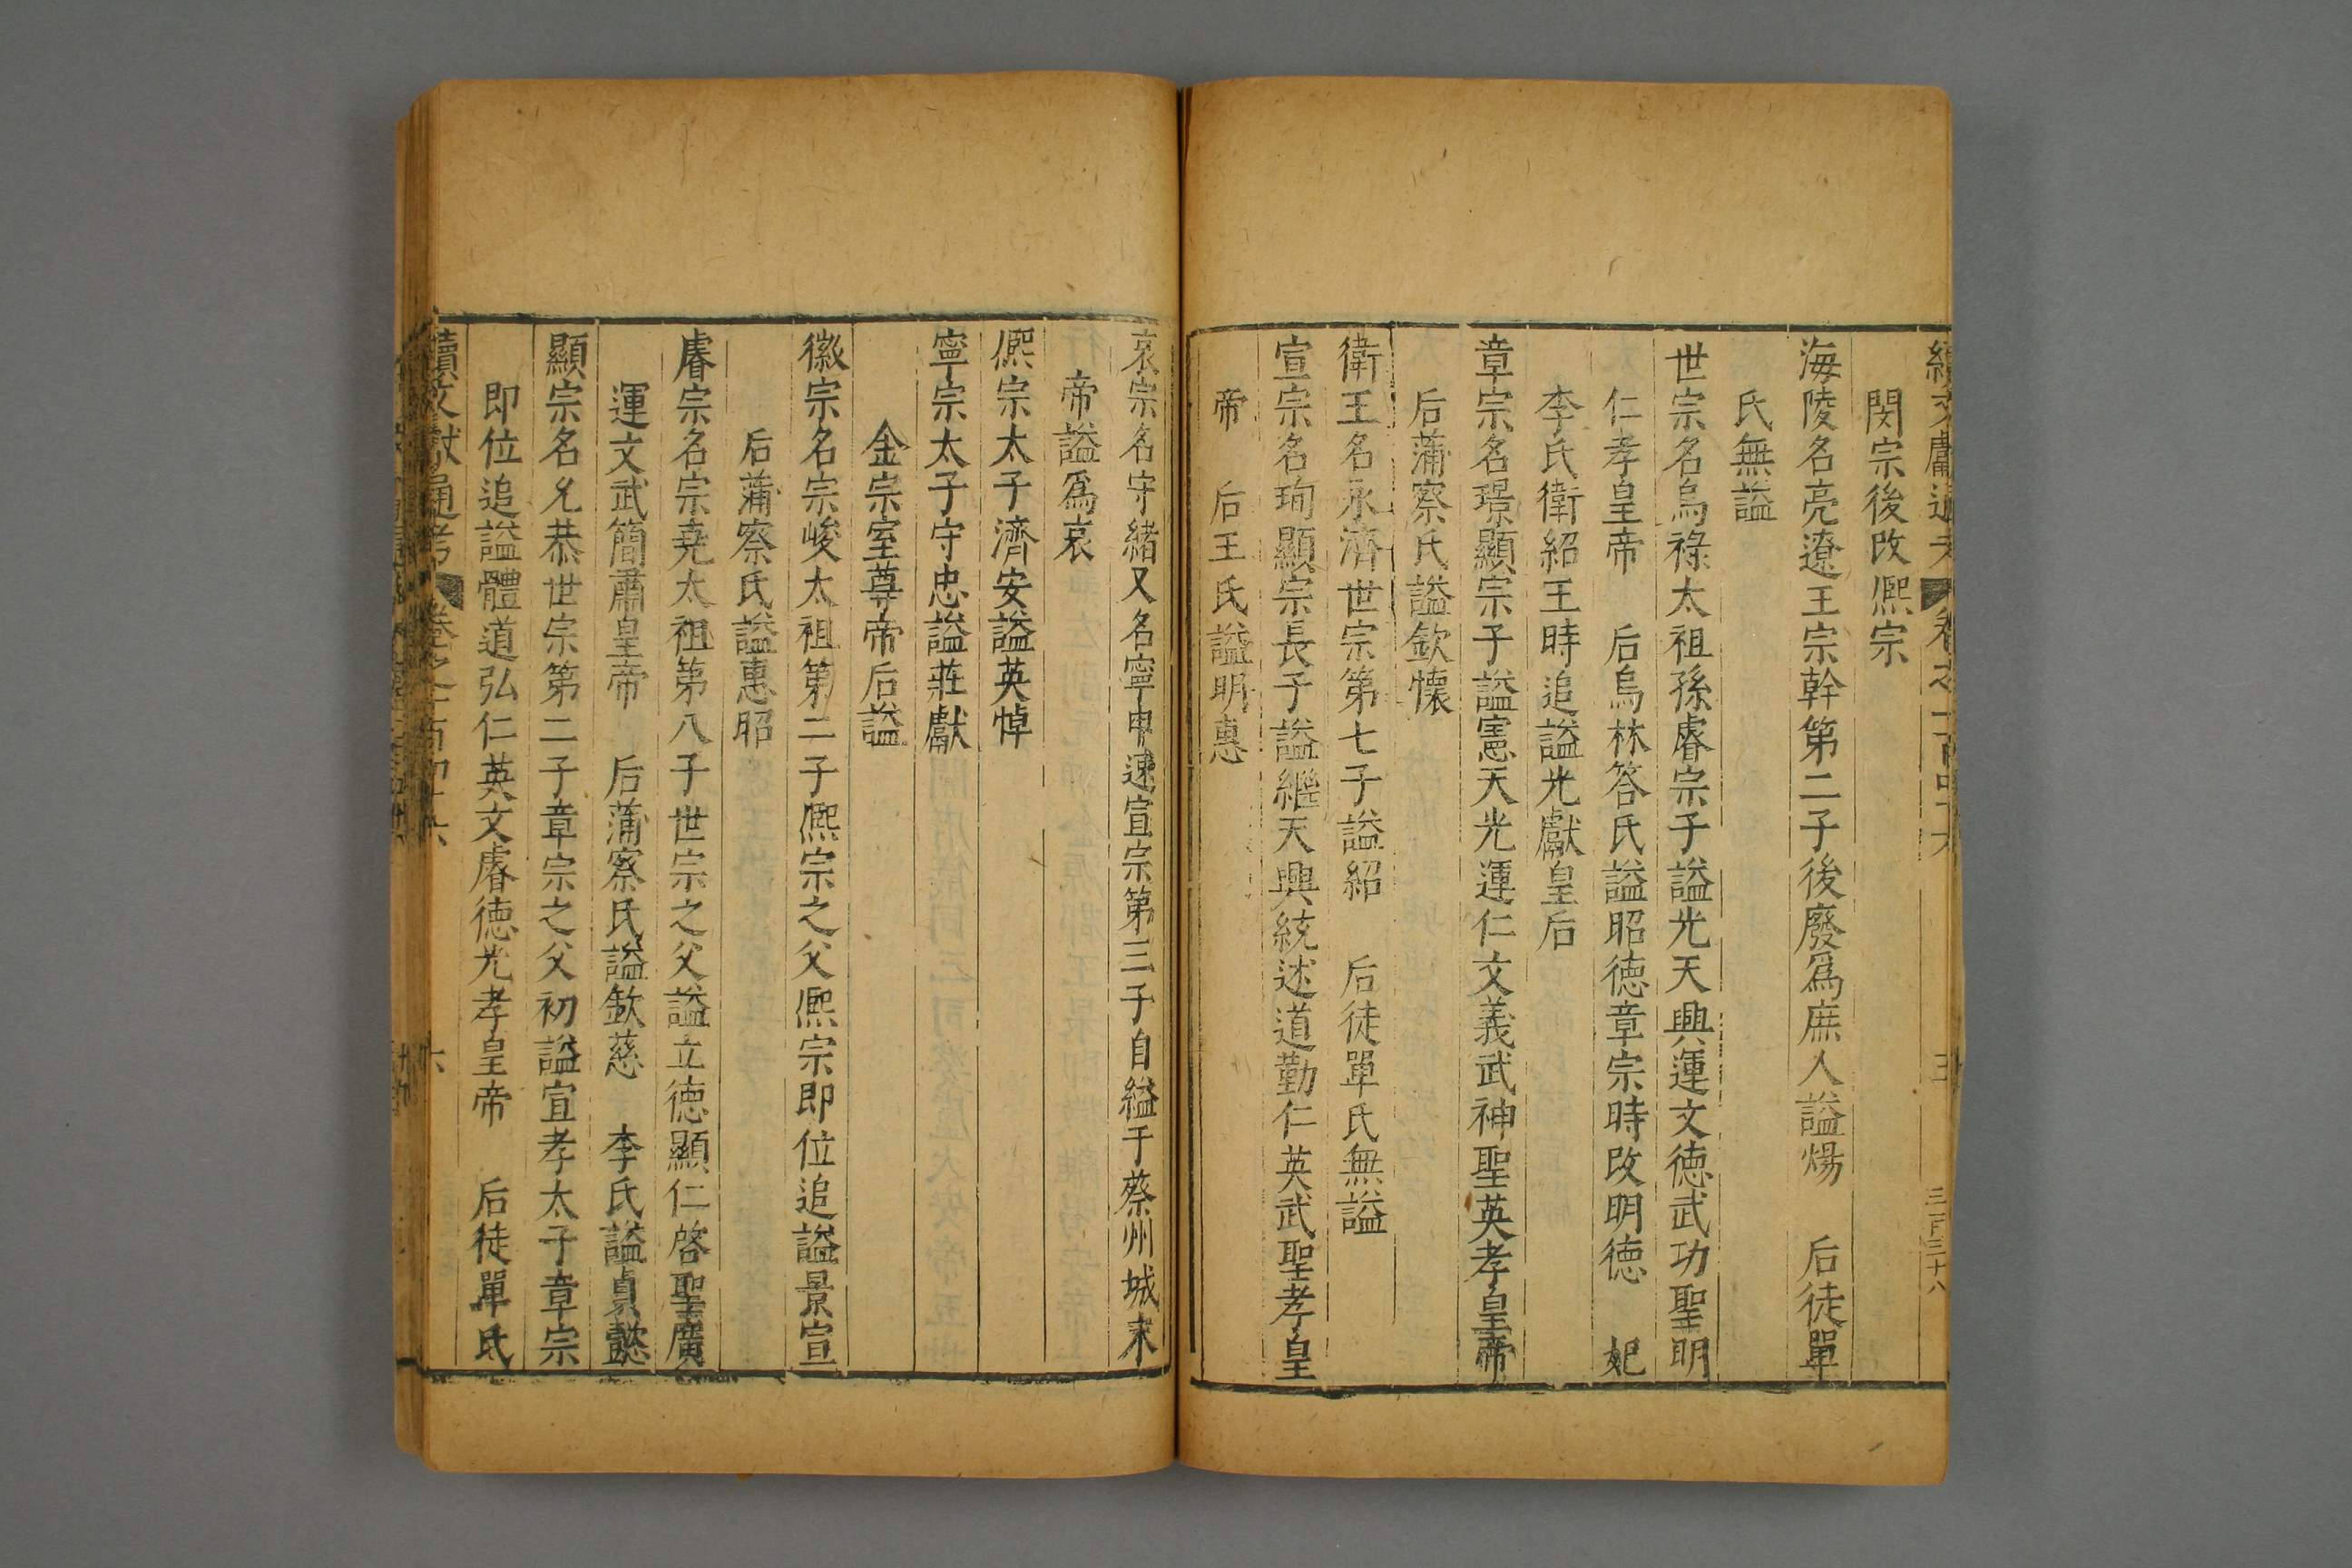 續文獻通考 卷之一百四十六 三百三十八
閔宗後改熈宗
海陵名亮遼王宗幹第二子後廢爲庶人謚煬 后徒單
氏無謚
世宗名烏祿太祖孫睿宗子謚光天興運文德武功聖明
仁孝皇帝 后烏林答氏謚昭德章宗時改明德 妃
李氏衛紹王時追謚光獻皇后
章宗名璟顯宗子謚憲天光運仁文義武神聖英孝皇帝
后蒲察氏謚欽懷
衛王名永濟世宗第七子謚紹 后徒單氏無謚
宣宗名珣顯宗長子謚繼天興統述道勤仁英武聖孝皇
帝 后王氏謚明惠
哀宗名守緒又名寧甲速宣宗第三子自縊于蔡州城末
帝謚爲哀
熈宗太子濟安謚英悼
寧宗太子守忠謚莊獻
金宗室尊帝后謚
徽宗名宗峻太祖第二子熈宗之父熈宗即位追謚景宣
后蒲察氏謚惠昭
睿宗名宗堯太祖第八子世宗之父謚立德顯仁啓聖廣
運文武簡肅皇帝 后蒲察氏謚欽慈 李氏謚貞懿
顯宗名允恭世宗第二子章宗之父初謚宣孝太子章宗
即位追謚體道弘仁英文睿德光孝皇帝 后徒單氏
續文獻通考 卷之一百四十六 六